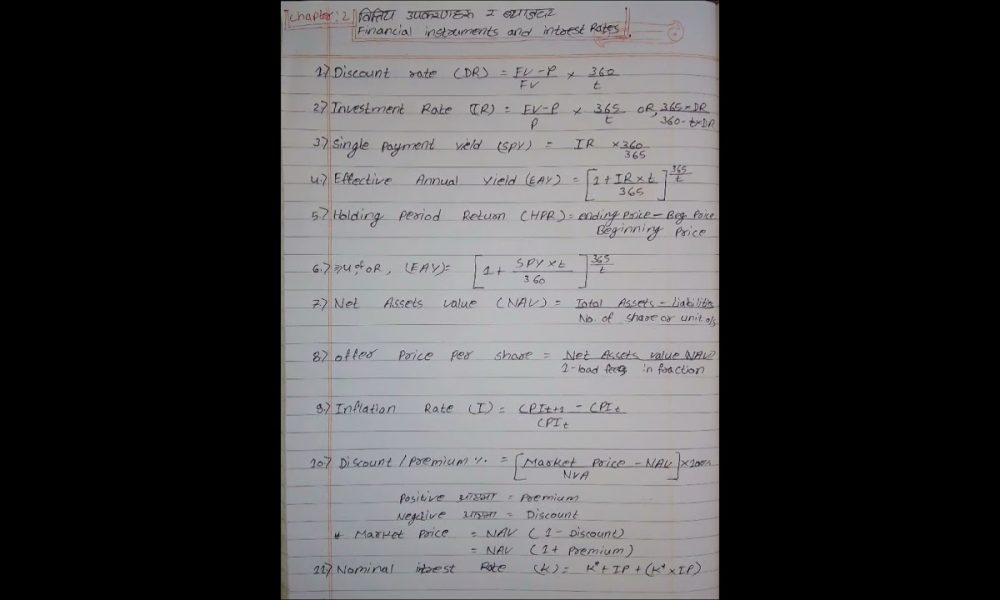 Chapter:2 वित्तिय उपकरणहरू र ब्याजदर
Financial instruments and intrest Rates
1) Discount rate (DR) = FV-P/FV × 360/t
2) Investment Rate (IR) = FV-P/P × 365/t OR, 365×DR/360-t×DR
3) Single Payment Yield (SPY) = IR ×360/365
4.) Effective Annual Yield (EAY) = [1+IR×t/365]^365/t
5.) Holding Period Return (HPR) = ending Price - Beg Price/Beginning Price
6.) OR, (EAY)= [1+ SPY×t/360]^365/t
7.) Net Assets value (NAV) = Total Assets - Liabilites/No. of share or unit o/s
8.) offer Price Per share = Net Assets value NAV/1-load fees in fraction
9.) Inflation Rate (I) = CPIt+1 - CPIt/CPIt
10) Discount / Premium %. = [Market Price - NAV/NVA]×100%
Positive आएमा = Premium
Negetive आएमा = Discount
* Market Price = NAV (1 - Discount)
= NAV (1+ Premium)
11) Nominal intrest Rate (K) = K*+IP+(K*×IP)